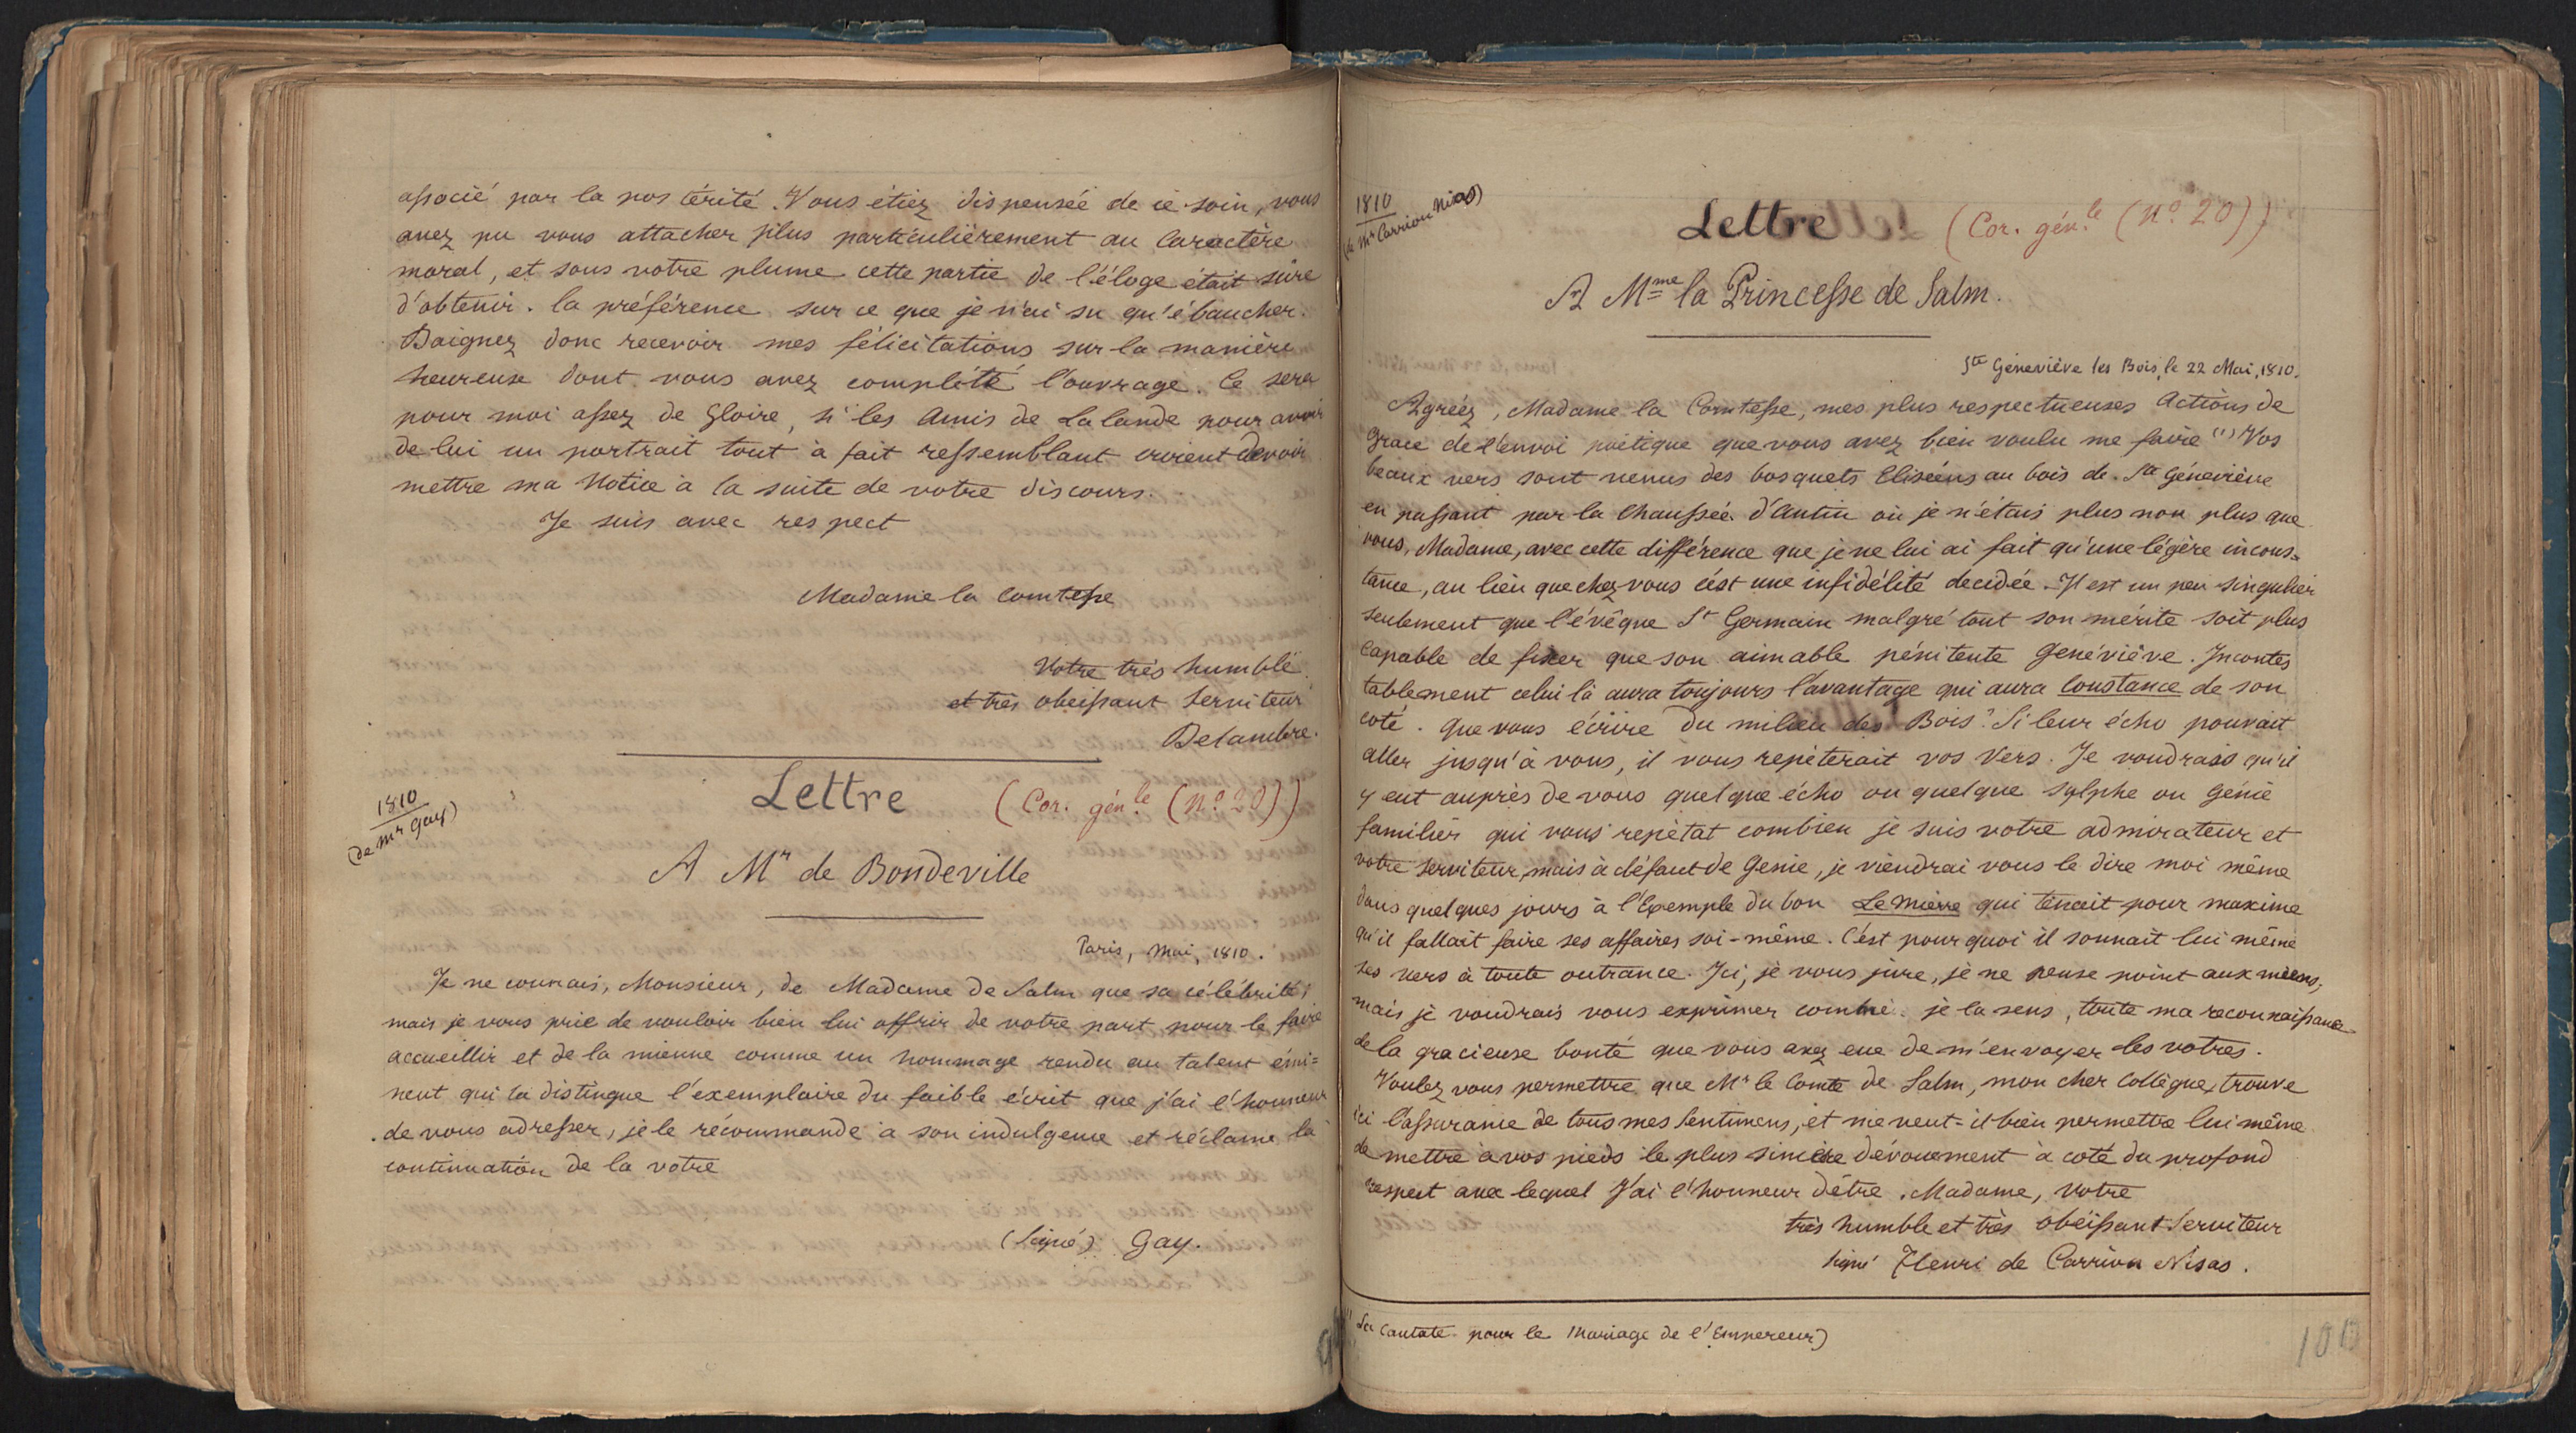 associé par la postérité. Vous étiez dispensée de ce soin, vous
avez pu vous attacher plus particulièrement au Caractère
moral, et sous votre plume cette partie de l'éloge était sûre
d'obtenir. la préférence sur ce que je n'ai su qu'ébaucher.
Daignez donc recevoir mes félicitations sur la manière
heureuse dont vous avez complété l'ouvrage. Ce sera
pour moi assez de Gloire, si les Amis de Lalande pour avoir
de lui un portrait tout à fait ressemblant croient devoir
mettre ma Notice à la suite de votre discours.
Je suis avec respect
Madame la Comtesse
Votre très humble
et très obeissant Serviteur
Delambre.
1810
(de Mr Gay)
Lettre (Cor. génle (No 20))
A Mr de Bondeville
Paris, Mai, 1810.
Je ne connais, Monsieur, de Madame de Salm que sa célébrité;
mais je vous prie de vouloir bien lui offrir de votre part pour le faire
accueillir et de la mienne comme un hommage rendu au talent émi=
nent qui la distingue l'exemplaire du faible écrit que j'ai l'honneur
de vous adresser, je le récommande à son indulgence et réclame la
continuation de la votre
(Signé) Gay.
1810
(de Mr Carrion Nisas)
Lettre (Cor. génle (No 20))
A Mme la Princesse de Salm.
Ste Géneviève les Bois, le 22 Mai, 1810.
Agréez, Madame la Comtesse, mes plus respectueuses Actions de
Grace de l'envoi poëtique que vous avez bien voulu me faire (1) Vos
beaux vers sont venus des bosquets Eliséens au bois de Ste Géneviève
en passant par la Chaussée d'Antin où je n'étais plus non plus que
vous, Madame, avec cette différence que je ne lui ai fait qu'une légère incons=
tance, au lieu que chez vous c'est une infidélité decidée. Il est un peu singulier
seulement que l'évêque St Germain malgré tout son mérite soit plus
Capable de fixer que son aimable pénitente Genéviève. Incontes
tablement celui là aura toujours l'avantage qui aura Constance de son
coté. Que vous écrire du milieu des Bois? Si leur écho pouvait
aller jusqu'à vous, il vous repèterait vos Vers. Je voudrais qu'il
y eut auprès de vous quelque écho ou quelque sylphe ou génie
familier qui vous repètat combien je suis votre admirateur et
votre serviteur, mais à défaut de Genie, je viendrai vous le dire moi même
dans quelques jours à l'Exemple du bon Le Mierre qui tenait pour maxime
qu'il fallait faire ses affaires soi-même. C'est pourquoi il sonnait lui même
ses vers à toute outrance. Ici, je vous jure, je ne pense point aux miens,
mais je voudrais vous exprimer comme je la sens, toute ma reconnaissance
de la gracieuse bonté que vous avez eue de m'envoyer les votres.
Voulez vous permettre que Mr le Comte de Salm, mon cher Collègue, trouve
ici l'assurance de tous mes Sentimens, et me veut-il bien permettre lui même
de mettre à vos pieds le plus sincère dévouement à coté du profond
respect avec lequel J'ai l'honneur d'être, Madame, Votre
très humble et très obeissant Serviteur
signé Henri de Carrion Nisas.
(1) La Cantate pour le Mariage de l'Empereur)
100